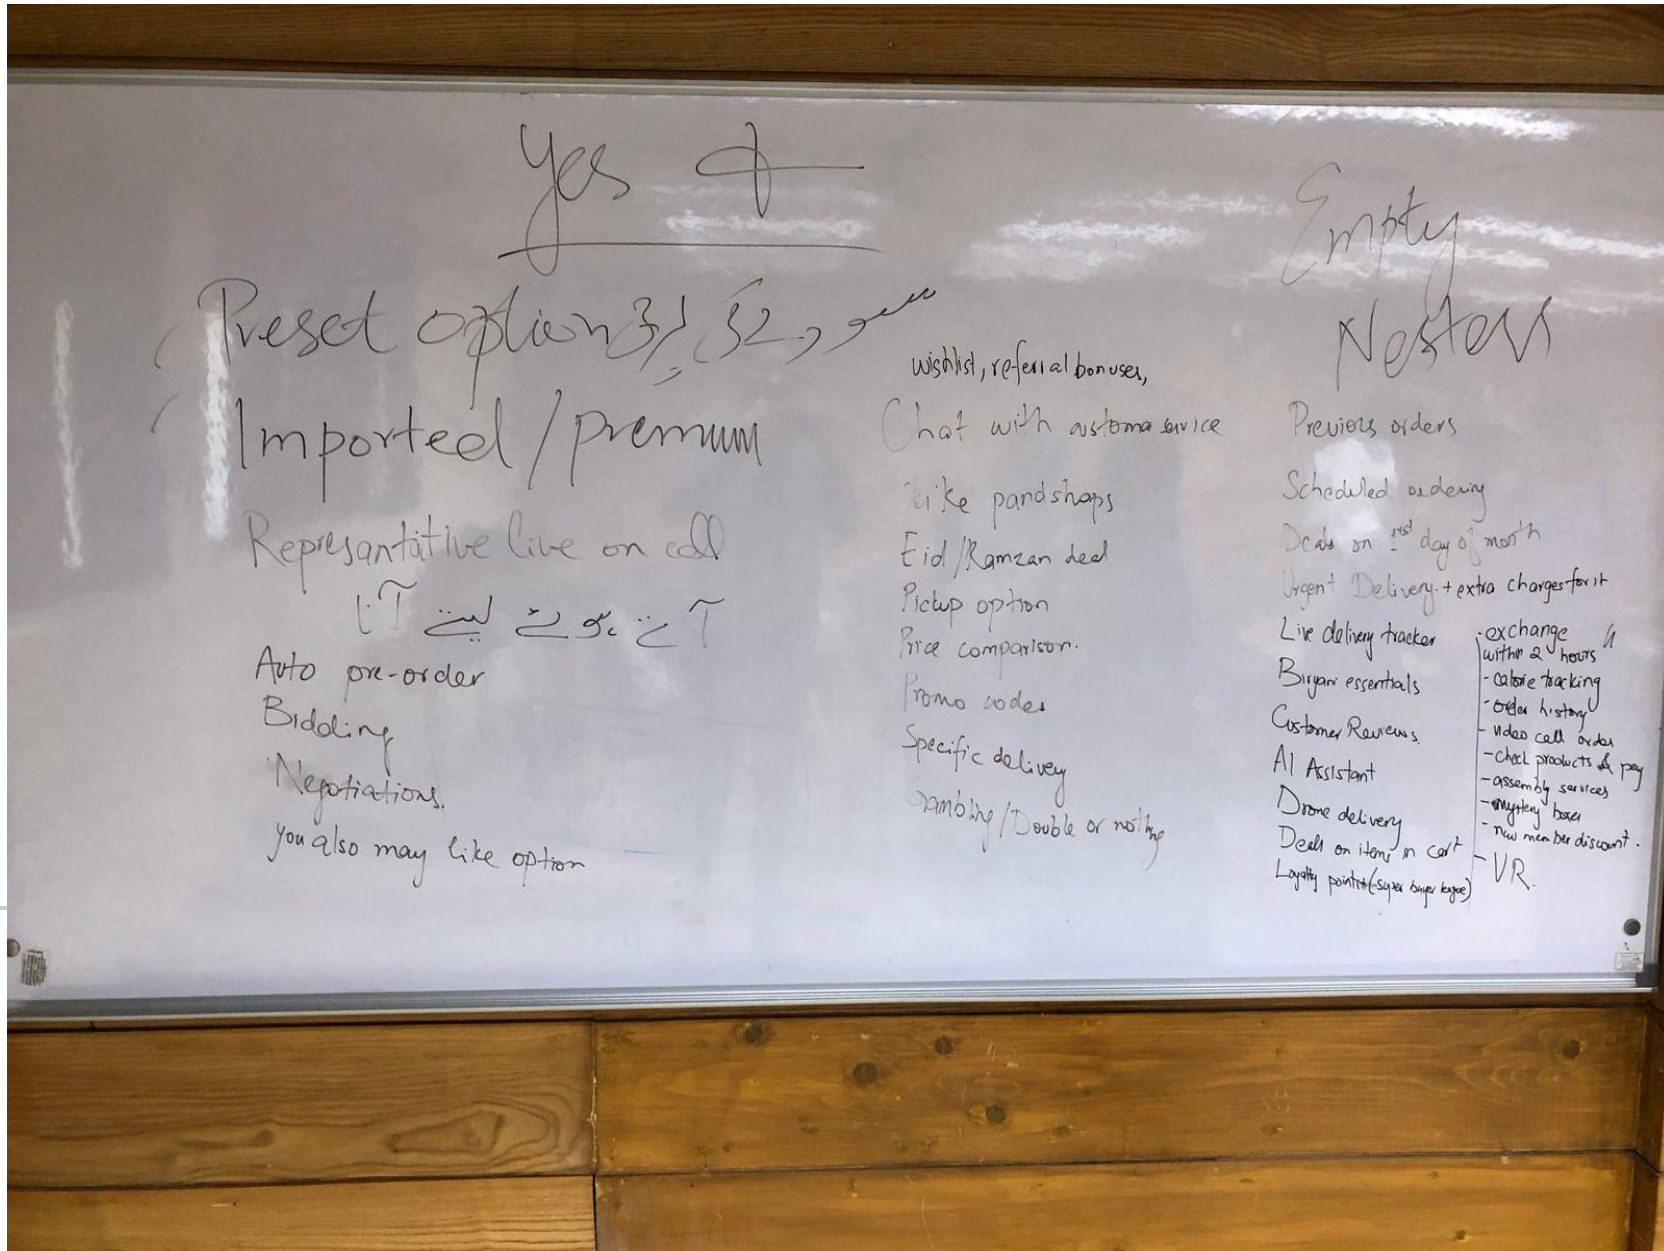 Yes +
Preset option
Imported/premum
Represantative live on call
آتے ہوئے لیتے آنا
Auto pre-order
Bidding
Negotiations.
you also may like option
wishlist, referral bonuses,
Chat with customer service
like pandshops
Eid/Ramzan deal
Pickup option
Price comparison.
Promo codes
Specific delivery
Gambling/Double or nothing
Empty
Nesters
Previous orders
Scheduled ordering
Deals on 1st day of month
Urgent Delivery + extra charges for it
Live delivery tracker
Biryani essentials
Customer Reviews.
AI Assistant
Drone delivery
Deals on items in cart
Loyalty points (super buyer league)
- exchange
within 2 hours
- calorie tracking
- order history
- video call order
- check products & pay
- assembly services
- mystery boxes
- new member discount.
- VR.